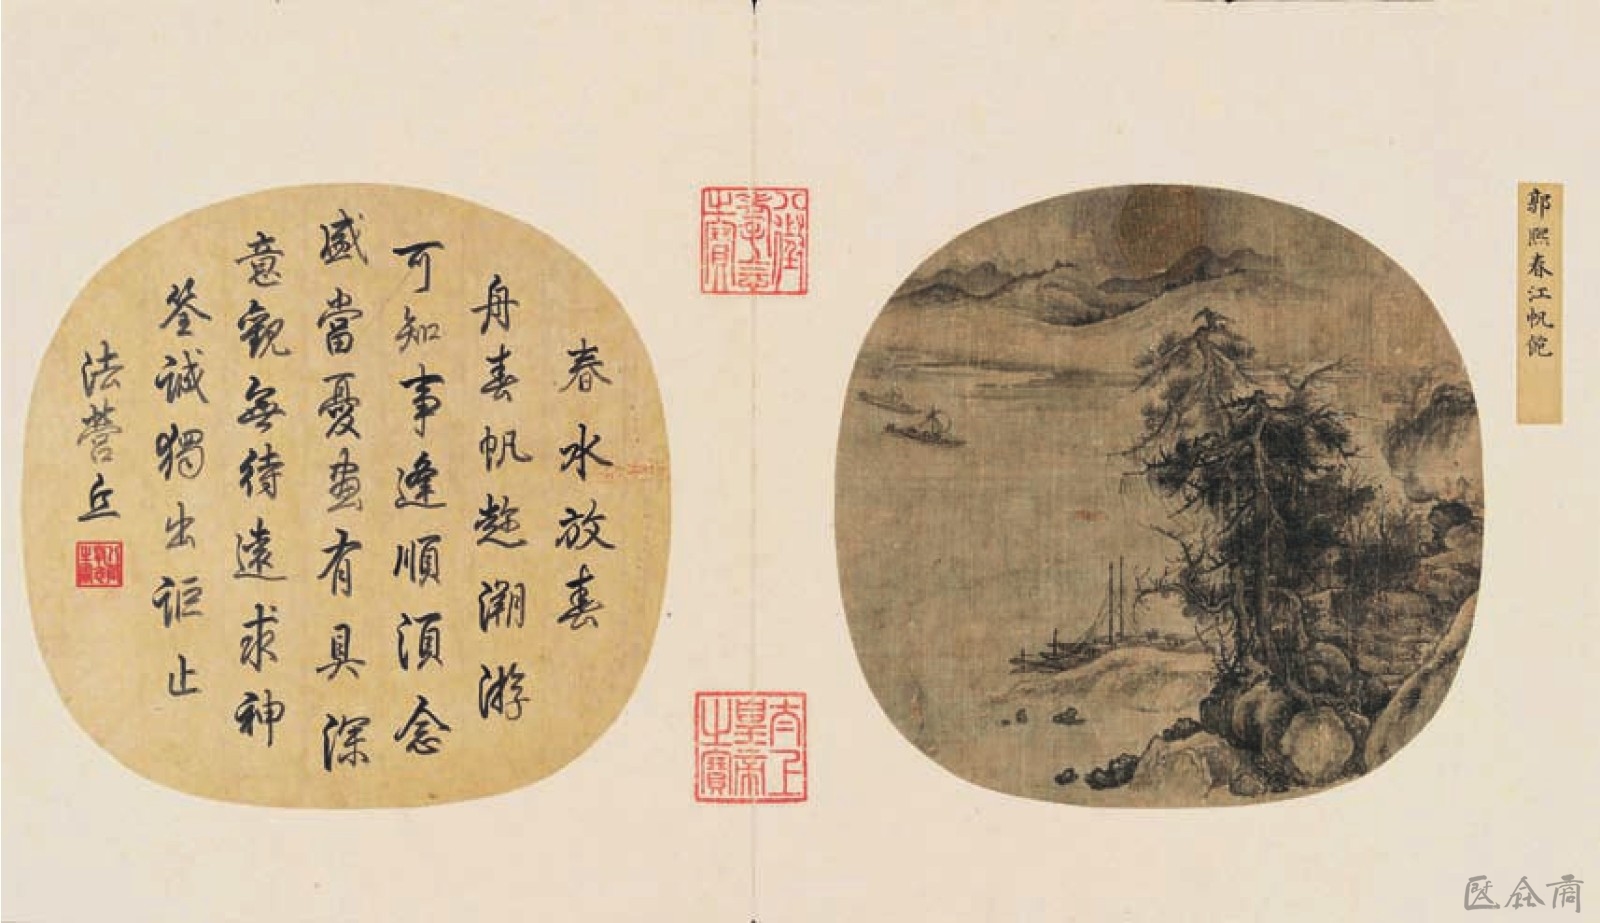 郭熙春江帆飽
八徵耄念之寶
太上皇帝之寶
春水放春
舟春帆趂溯游
可知事逢順須念
盛當憂畫有具深
意觀無待遠求神
筌誠獨出詎止
法營丘